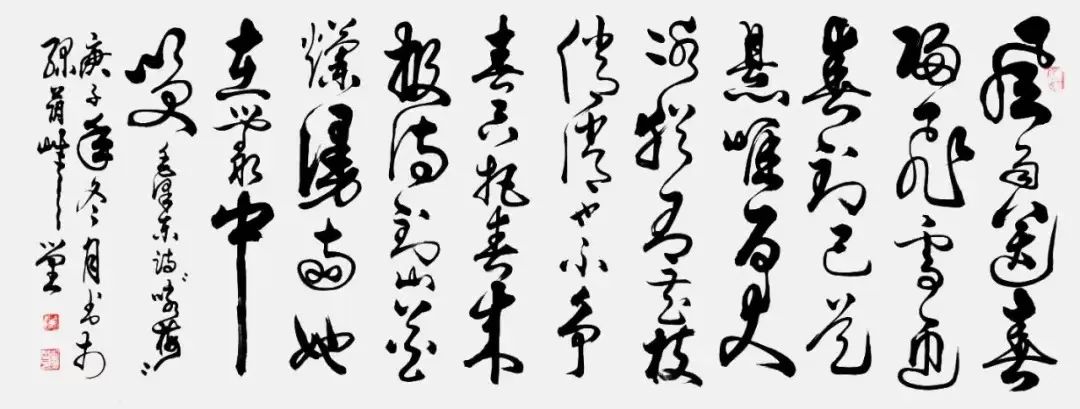 风雨送春
归飞雪迎
春到已是
悬崖百丈
冰犹有花枝
俏俏也不争
春只把春来
报待到山花
烂漫时她
在丛中
笑 毛泽东诗咏梅
庚子年冬月书于